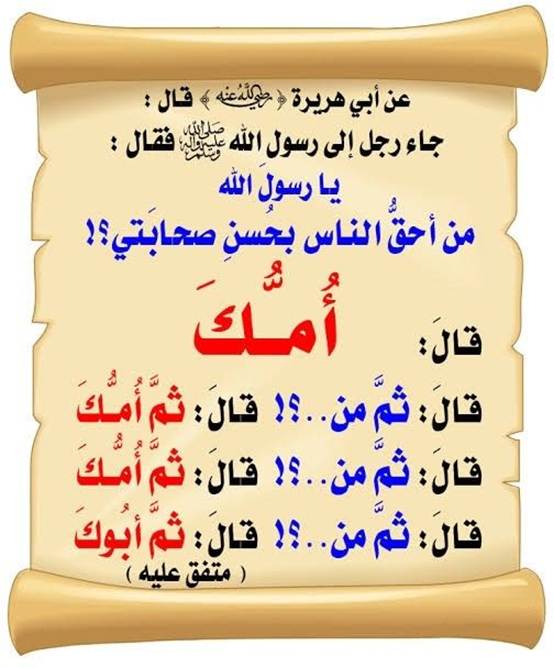 عن أبي هريرة ﴿ رضي الله عنه ﴾ قال :
جاء رجل إلى رسول الله ﷺ فقال :
يا رسولَ الله
من أحقُّ الناس بحُسنِ صحابَتي؟!
قالَ: أُمُّكَ
قالَ: ثمَّ من..؟! قالَ: ثمَّ أُمُّكَ
قالَ: ثمَّ من..؟! قالَ: ثمَّ أُمُّكَ
قالَ: ثمَّ من..؟! قالَ: ثمَّ أبُوكَ
( متفق عليه )